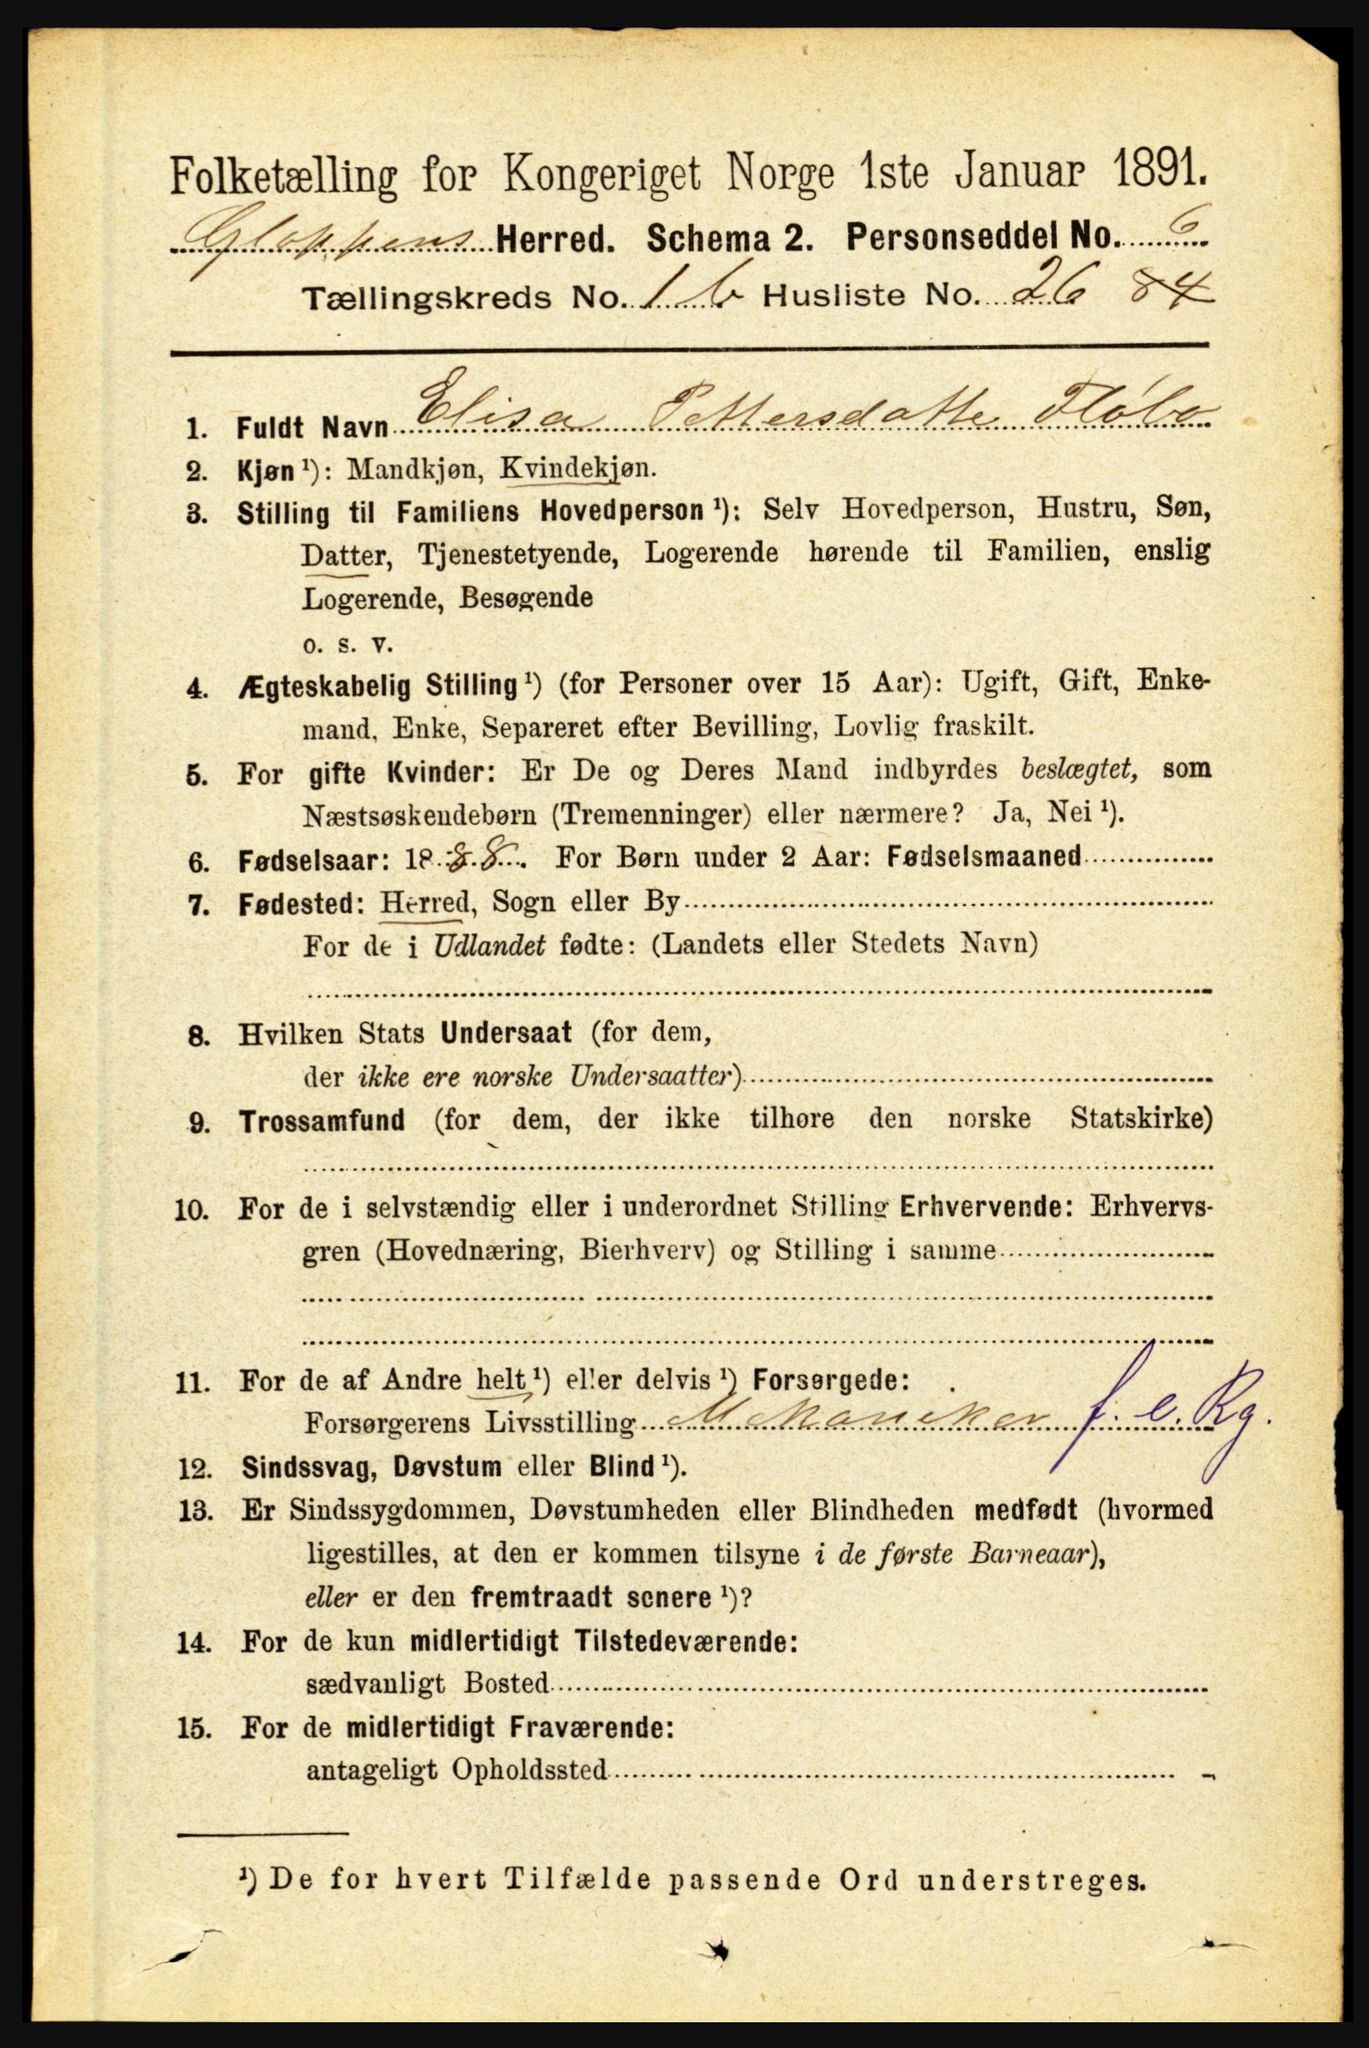 Folketælling for Kongeriget Norge 1ste Januar 1891.
Gloppens Herred. Schema 2. Personseddel No. 6
Tællingskreds No. 1 b Husliste No. 26 84
1. Fuldt Navn Elisa Pettersdatte Fløbo
2. Kjøn ¹): Mandkjøn, Kvindekjøn.
3. Stilling til Familiens Hovedperson ¹): Selv Hovedperson, Hustru, Søn,
Datter, Tjenestetyende, Logerende hørende til Familien, enslig
Logerende, Besøgende
o. s. v.
4. Ægteskabelig Stilling ¹) (for Personer over 15 Aar): Ugift, Gift, Enke-
mand, Enke, Separeret efter Bevilling, Lovlig fraskilt.
5. For gifte Kvinder: Er De og Deres Mand indbyrdes beslægtet, som
Næstsøskendebørn (Tremenninger) eller nærmere? Ja, Nei ¹).
6. Fødselsaar: 1888. For Børn under 2 Aar: Fødselsmaaned
7. Fødested: Herred, Sogn eller By
For de i Udlandet fødte: (Landets eller Stedets Navn)
8. Hvilken Stats Undersaat (for dem,
der ikke ere norske Undersaatter)
9. Trossamfund (for dem, der ikke tilhøre den norske Statskirke)
10. For de i selvstændig eller i underordnet Stilling Erhvervende: Erhvervs-
gren (Hovednæring, Bierhverv) og Stilling i samme
11. For de af Andre helt ¹) eller delvis ¹) Forsørgede:
Forsørgerens Livsstilling Mekaniker f. e. Rg.
12. Sindssvag, Døvstum eller Blind ¹).
13. Er Sindssygdommen, Døvstumheden eller Blindheden medfødt (hvormed
ligestilles, at den er kommen tilsyne i de første Barneaar),
eller er den fremtraadt senere ¹)?
14. For de kun midlertidigt Tilstedeværende:
sædvanligt Bosted
15. For de midlertidigt Fraværende:
antageligt Opholdssted
¹) De for hvert Tilfælde passende Ord understreges.